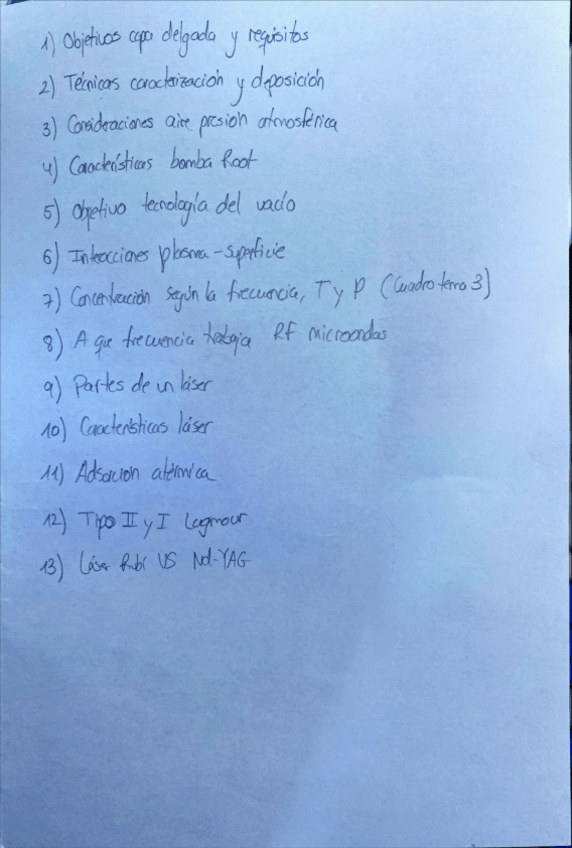 1) Objetivos capa delgada y requisitos
2) Técnicas caracterización y deposición
3) Consideraciones aire presión atmosférica
4) Características bomba Root
5) Objetivo tecnología del vacío
6) Interacciones plasma-superficie
7) Concentración según la frecuencia, T y P (Cuadro tema 3)
8) A que frecuencia trabaja RF microondas
9) Partes de un láser
10) Características láser
11) Adsorción atérmica
12) Tipo II y I Lagmour
13) Láser Rubí VS Nd-YAG